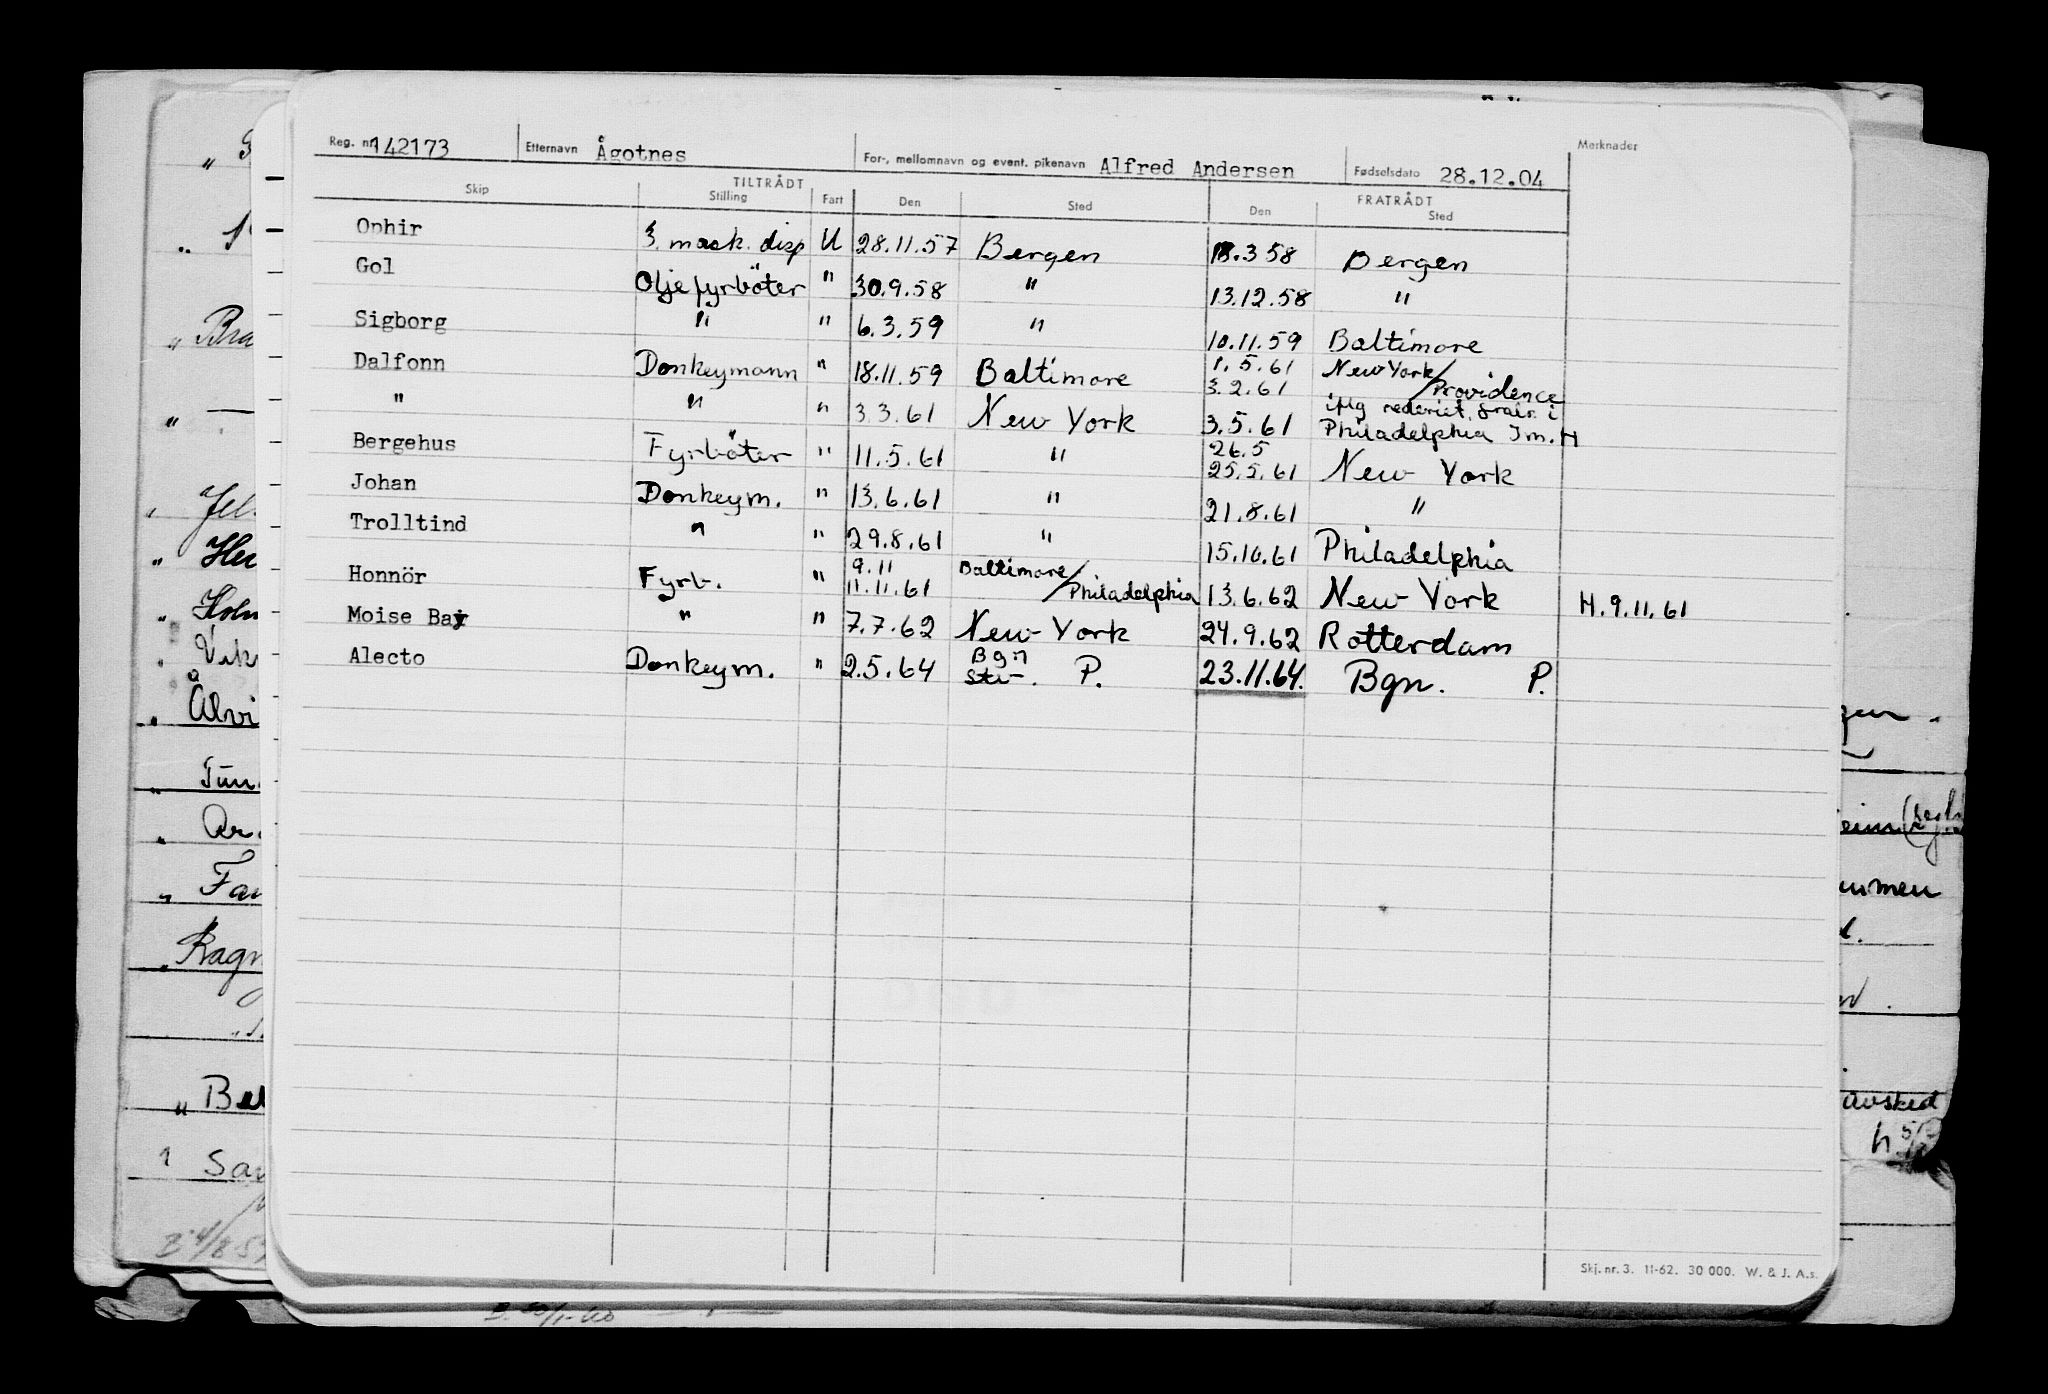 Reg. nr. 142173 Etternavn Ågotnes For-, mellomnavn og event. pikenavn Alfred Andersen Fødselsdato 28.12.04 Merknader
TILTRÅDT FRATRÅDT
Skip Stilling Fart Den Sted Den Sted
Ophir 3. mask. disp U 28.11.57 Bergen 18.3.58 Bergen
Gol Oljefyrböter " 30.9.58 " 13.12.58 "
Sigborg " " 6.3.59 " 10.11.59 Baltimore
Dalfonn Donkeymann " 18.11.59 Baltimore 1.5.61 New York/
3.2.61 Providence
" " " 3.3.61 New York 3.5.61 iflg rederiet i
Philadelphia Im. H
Bergehus Fyrböter " 11.5.61 " 26.5
25.5.61 New York
Johan Donkeym. " 13.6.61 " 21.8.61 "
Trolltind " " 29.8.61 " 15.10.61 Philadelphia
Honnör Fyrb. " 9.11 Baltimore/
11.11.61 Philadelphia 13.6.62 New York H. 9.11.61
Moise Bay " " 7.7.62 New York 24.9.62 Rotterdam
Alecto Donkeym. " 2.5.64 Bgn P. 23.11.64. Bgn. P.
Skj. nr. 3. 11-62. 30 000. W. & J. A.s.